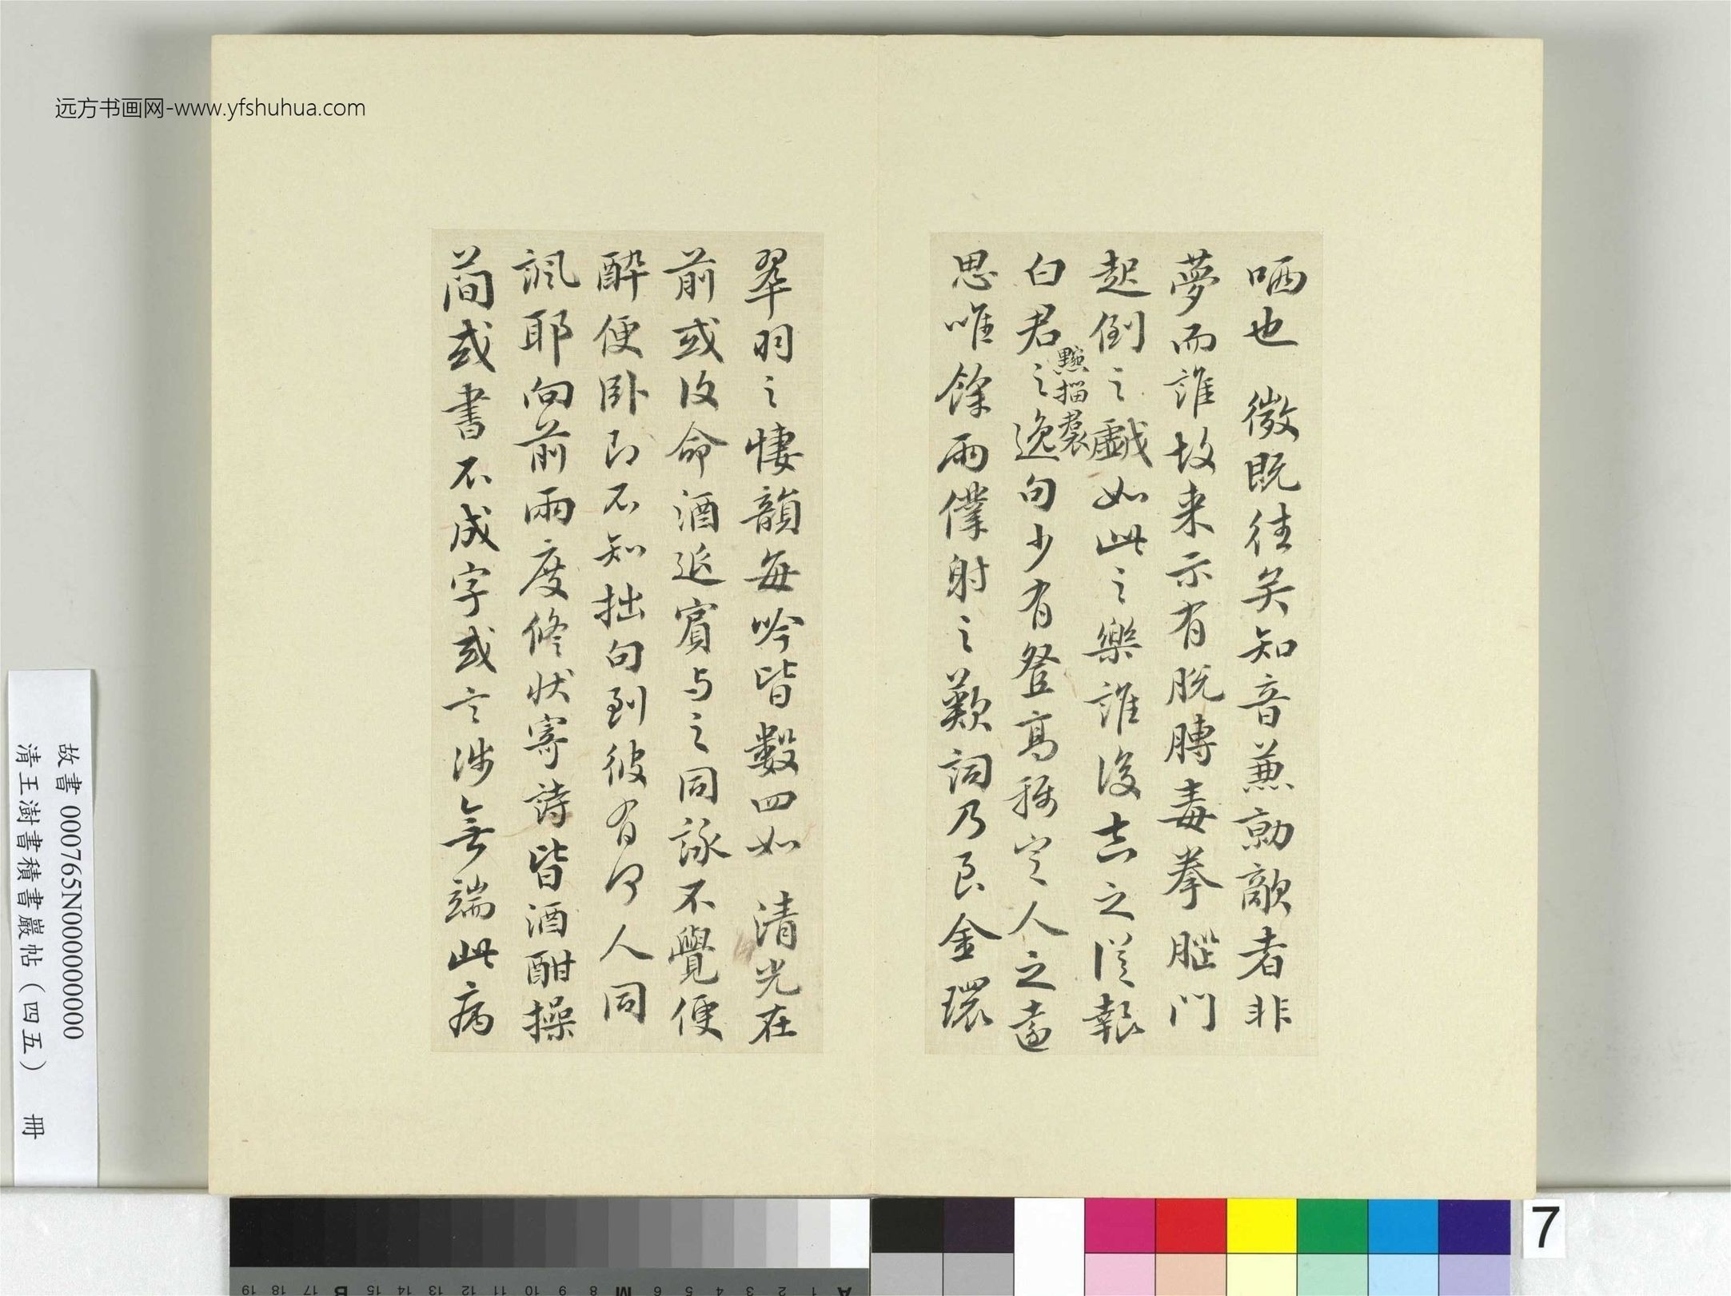 远方书画网-www.yfshuhua.com
哂也 微既往矣知音兼勍敵者非
夢而誰故来示有脱膊毒拳腦门
起倒之戯如此之樂誰復知之従報
白君黥掇裙之逸句少有登高稱之人之遠
思唯餘兩僕射之歎詞乃良金環
翠羽之悽韻每吟皆數四如 清光在
前或復命酒延賓与之同詠不覺便
醉便卧即不知拙句到彼有何人同
諷耶向前兩度修状寄詩皆酒酣操
简或書不成字或言涉無端此病
故書 000765N000000000
清王澍書積書巖帖（四五） 冊
7